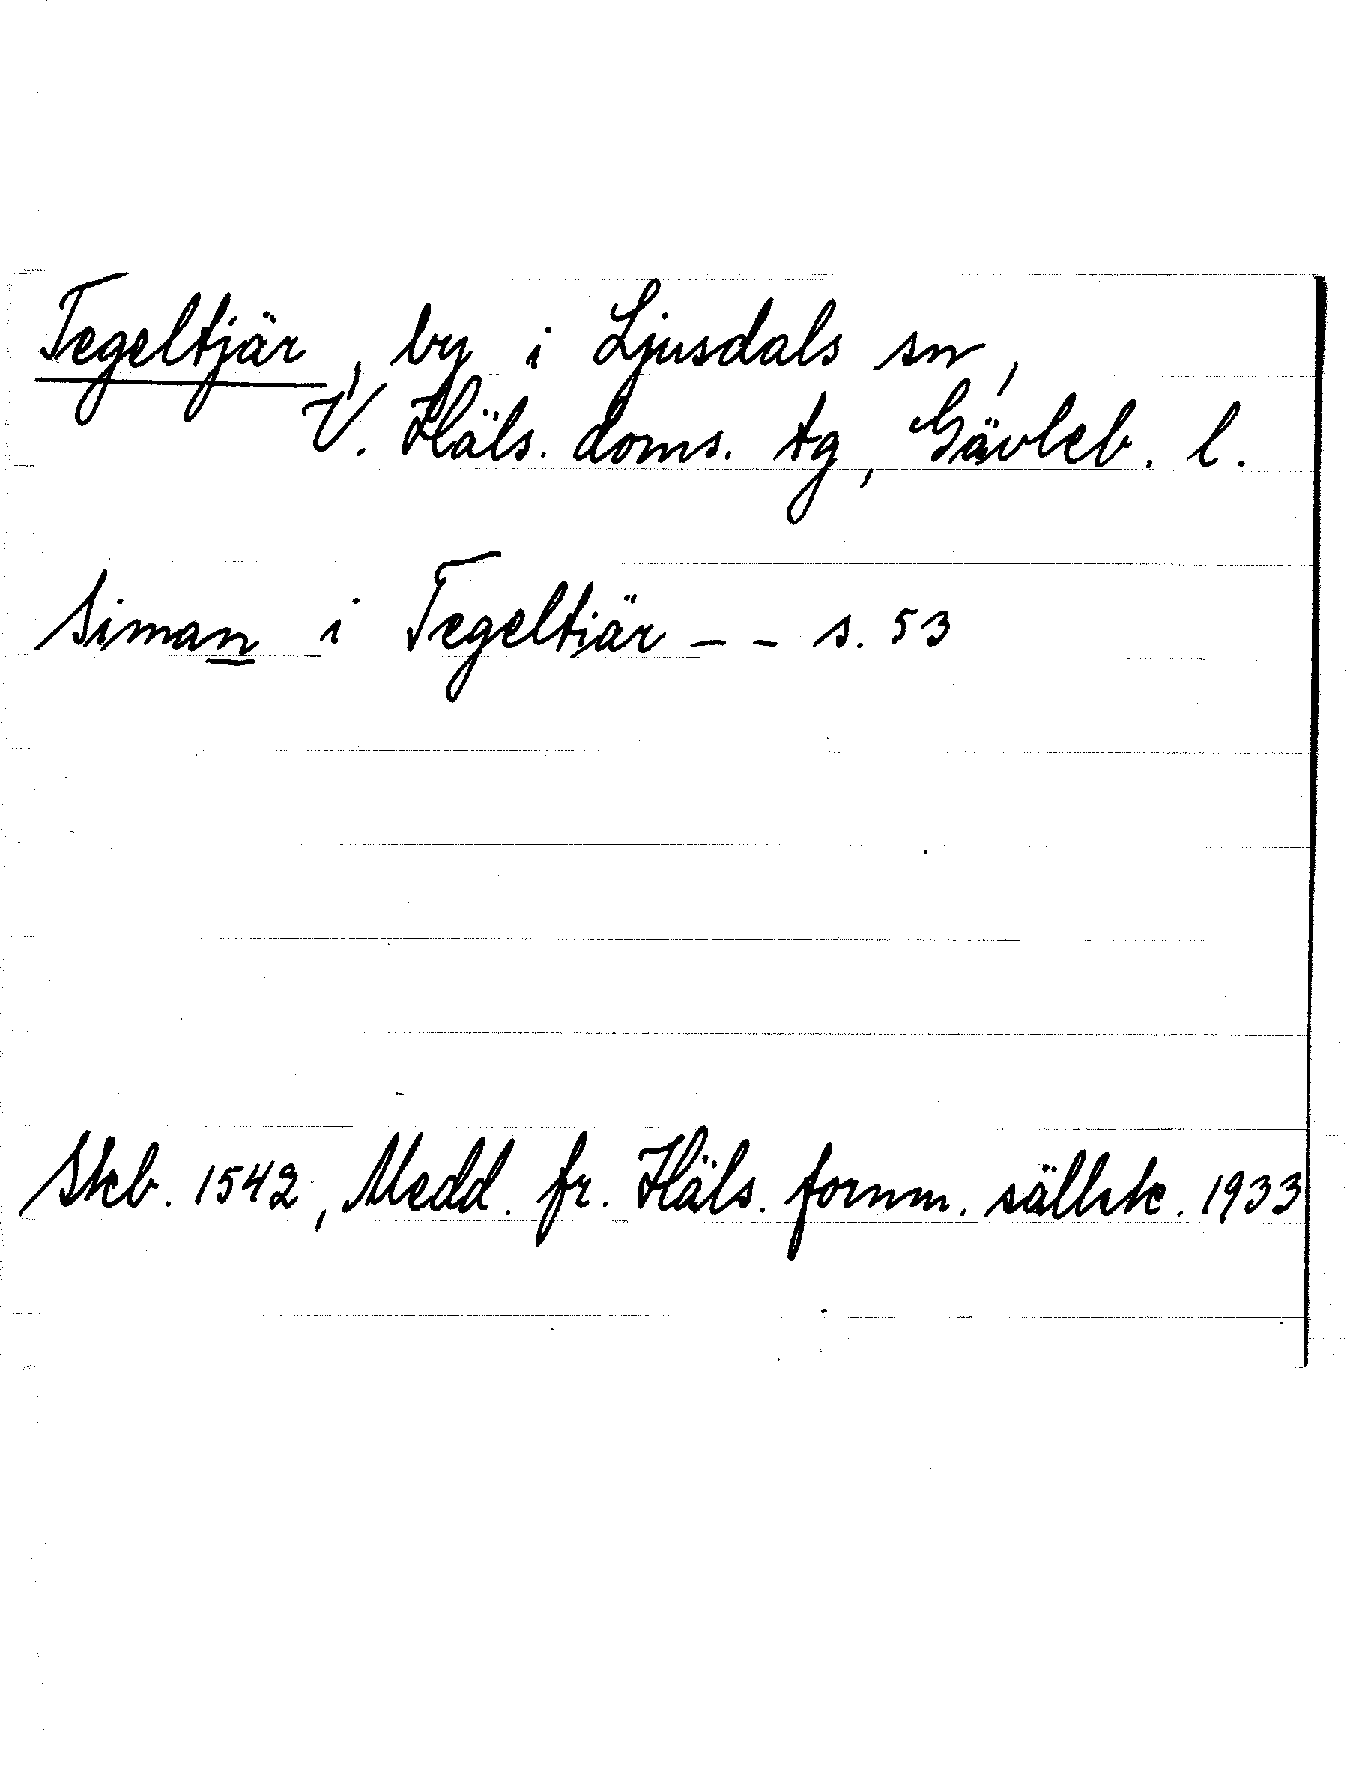 Tegeltjär, by i Ljusdals sn,
V. Häls. doms. tg, Gävleb. l.
Siman i Tegeltiär -- s. 53
Skb. 1542, Medd. fr. Häls. fornm. sällsk. 1933